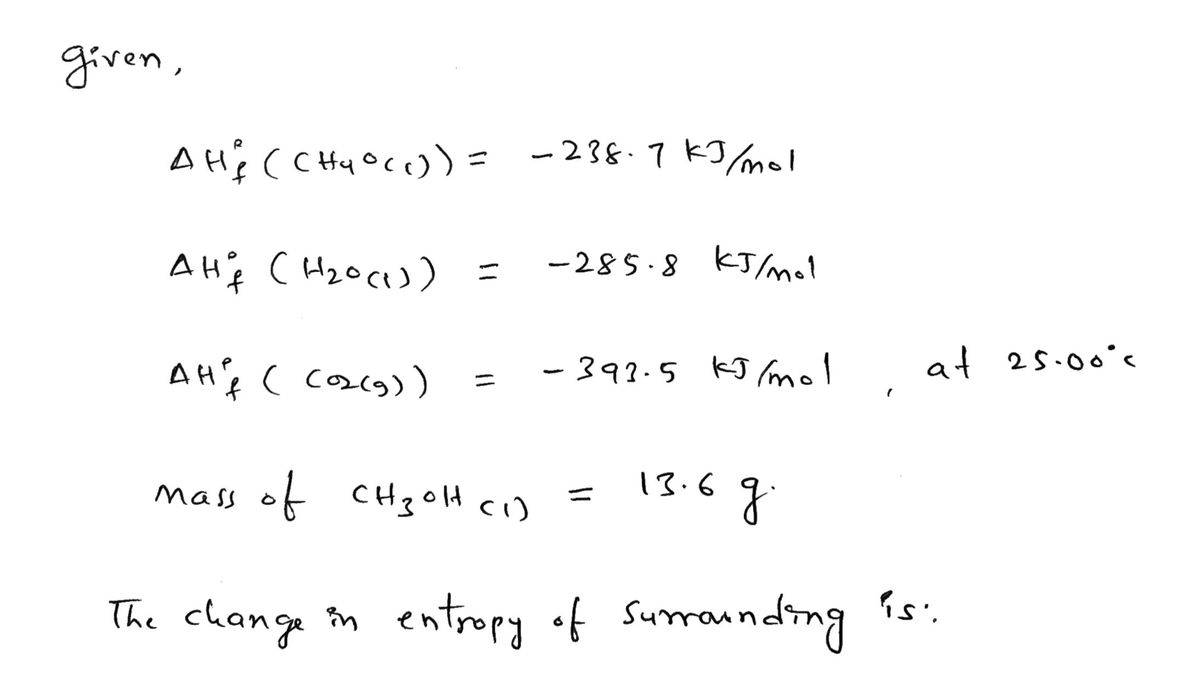 given,
ΔH°f (CH4O(l)) = -238.7 kJ/mol
ΔH°f (H2O(l)) = -285.8 kJ/mol
ΔH°f (CO2(g)) = -393.5 kJ/mol, at 25.00°C
Mass of CH3OH(l) = 13.6 g.
The change in entropy of surrounding is: